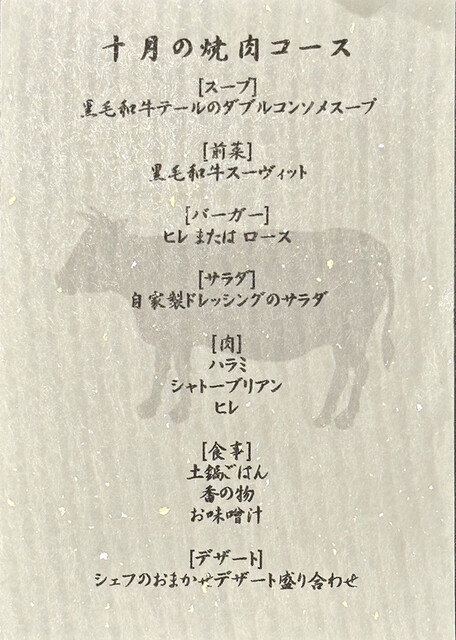 十月の焼肉コース
[スープ]
黒毛和牛テールのダブルコンソメスープ
[前菜]
黒毛和牛スーヴィット
[バーガー]
ヒレ または ロース
[サラダ]
自家製ドレッシングのサラダ
[肉]
ハラミ
シャトーブリアン
ヒレ
[食事]
土鍋ごはん
香の物
お味噌汁
[デザート]
シェフのおまかせデザート盛り合わせ